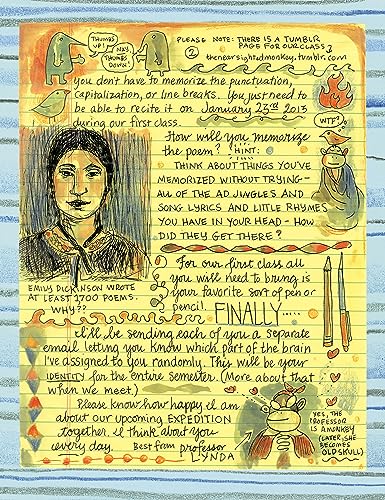 THUMBS UP!
NAY, THUMBS DOWN!
PLEASE NOTE: THERE IS A TUMBLR
PAGE FOR OUR CLASS
2
thenearsightedmonkey.tumblr.com
you don't have to memorize the punctuation,
capitalization, or line breaks. You just need to
be able to recite it on January 23rd 2013
during our first class.
WTF?
How will you memorize
the poem? HINT:
THINK ABOUT THINGS YOU'VE
MEMORIZED WITHOUT TRYING—
ALL OF THE AD JINGLES AND
SONG LYRICS AND LITTLE RHYMES
YOU HAVE IN YOUR HEAD - HOW
DID THEY GET THERE?
EMILY DICKINSON WROTE
AT LEAST 1700 POEMS.
WHY??
For our first class all
you will need to bring is
your favorite sort of pen or
pencil. FINALLY.....
I'll be sending each of you a separate
email letting you know which part of the brain
I've assigned to you randomly. This will be your
IDENTITY for the entire semester. (More about that
when we meet)
Please know how happy I am
about our upcoming EXPEDITION
together. I think about you
every day. Best from professor
LYNDA
YES, THE
PROFESSOR
IS A MONKEY
(LATER, SHE
BECOMES
OLD SKULL)